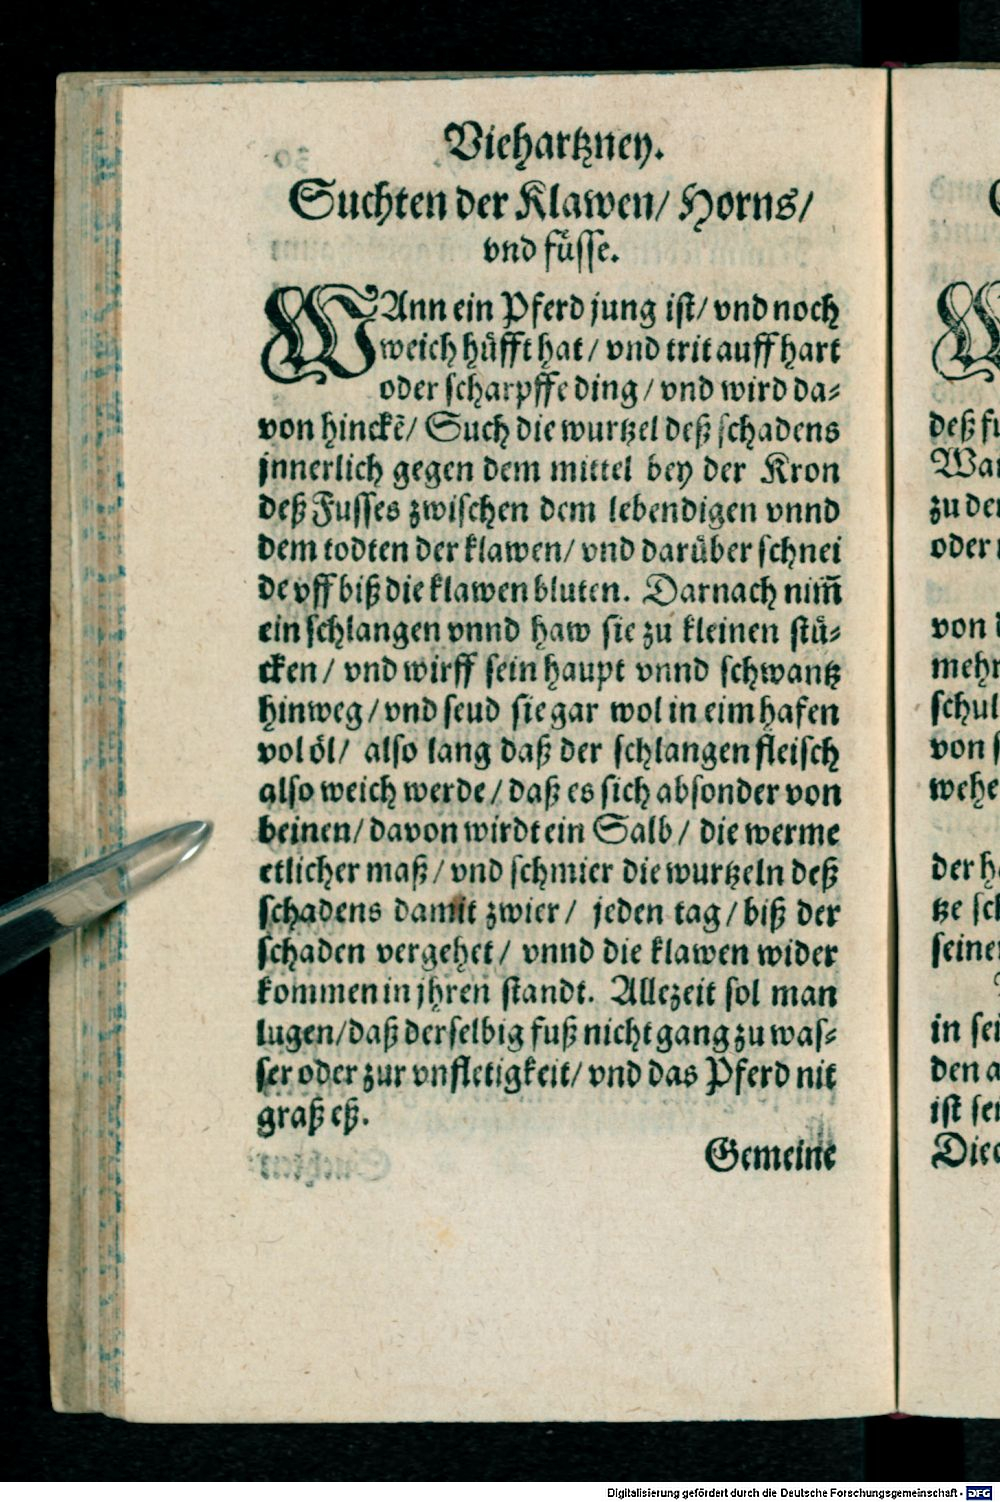 Viehartzney.
Suchten der Klawen/ Horns/
vnd füsse.
WAnn ein Pferd jung ist/ vnd noch
weich hüfft hat/ vnd trit auff hart
oder scharpffe ding/ vnd wird da⸗
von hinckẽ/ Such die wurtzel deß schadens
jnnerlich gegen dem mittel bey der Kron
deß Fusses zwischen dem lebendigen vnnd
dem todten der klawen/ vnd darüber schnei
de vff biß die klawen bluten. Darnach nim̃
ein schlangen vnnd haw sie zu kleinen stü⸗
cken/ vnd wirff sein haupt vnnd schwantz
hinweg/ vnd seud sie gar wol in eim hafen
vol öl/ also lang daß der schlangen fleisch
also weich werde/ daß es sich absonder von
beinen/ davon wirdt ein Salb/ die werme
etlicher maß/ vnd schmier die wurtzeln deß
schadens damit zwier/ jeden tag/ biß der
schaden vergehet/ vnnd die klawen wider
kommen in jhren standt. Allezeit sol man
lugen/ daß derselbig fuß nicht gang zu was⸗
ser oder zur vnfletigkeit/ vnd das Pferd nit
graß eß.
Gemeine
deß
Wa
zu de
oder
von
mehr
schul
von
wehe
der h
tze sc
seine
in sei
den a
ist se
Die
Digitalisierung gefördert durch die Deutsche Forschungsgemeinschaft - DFG